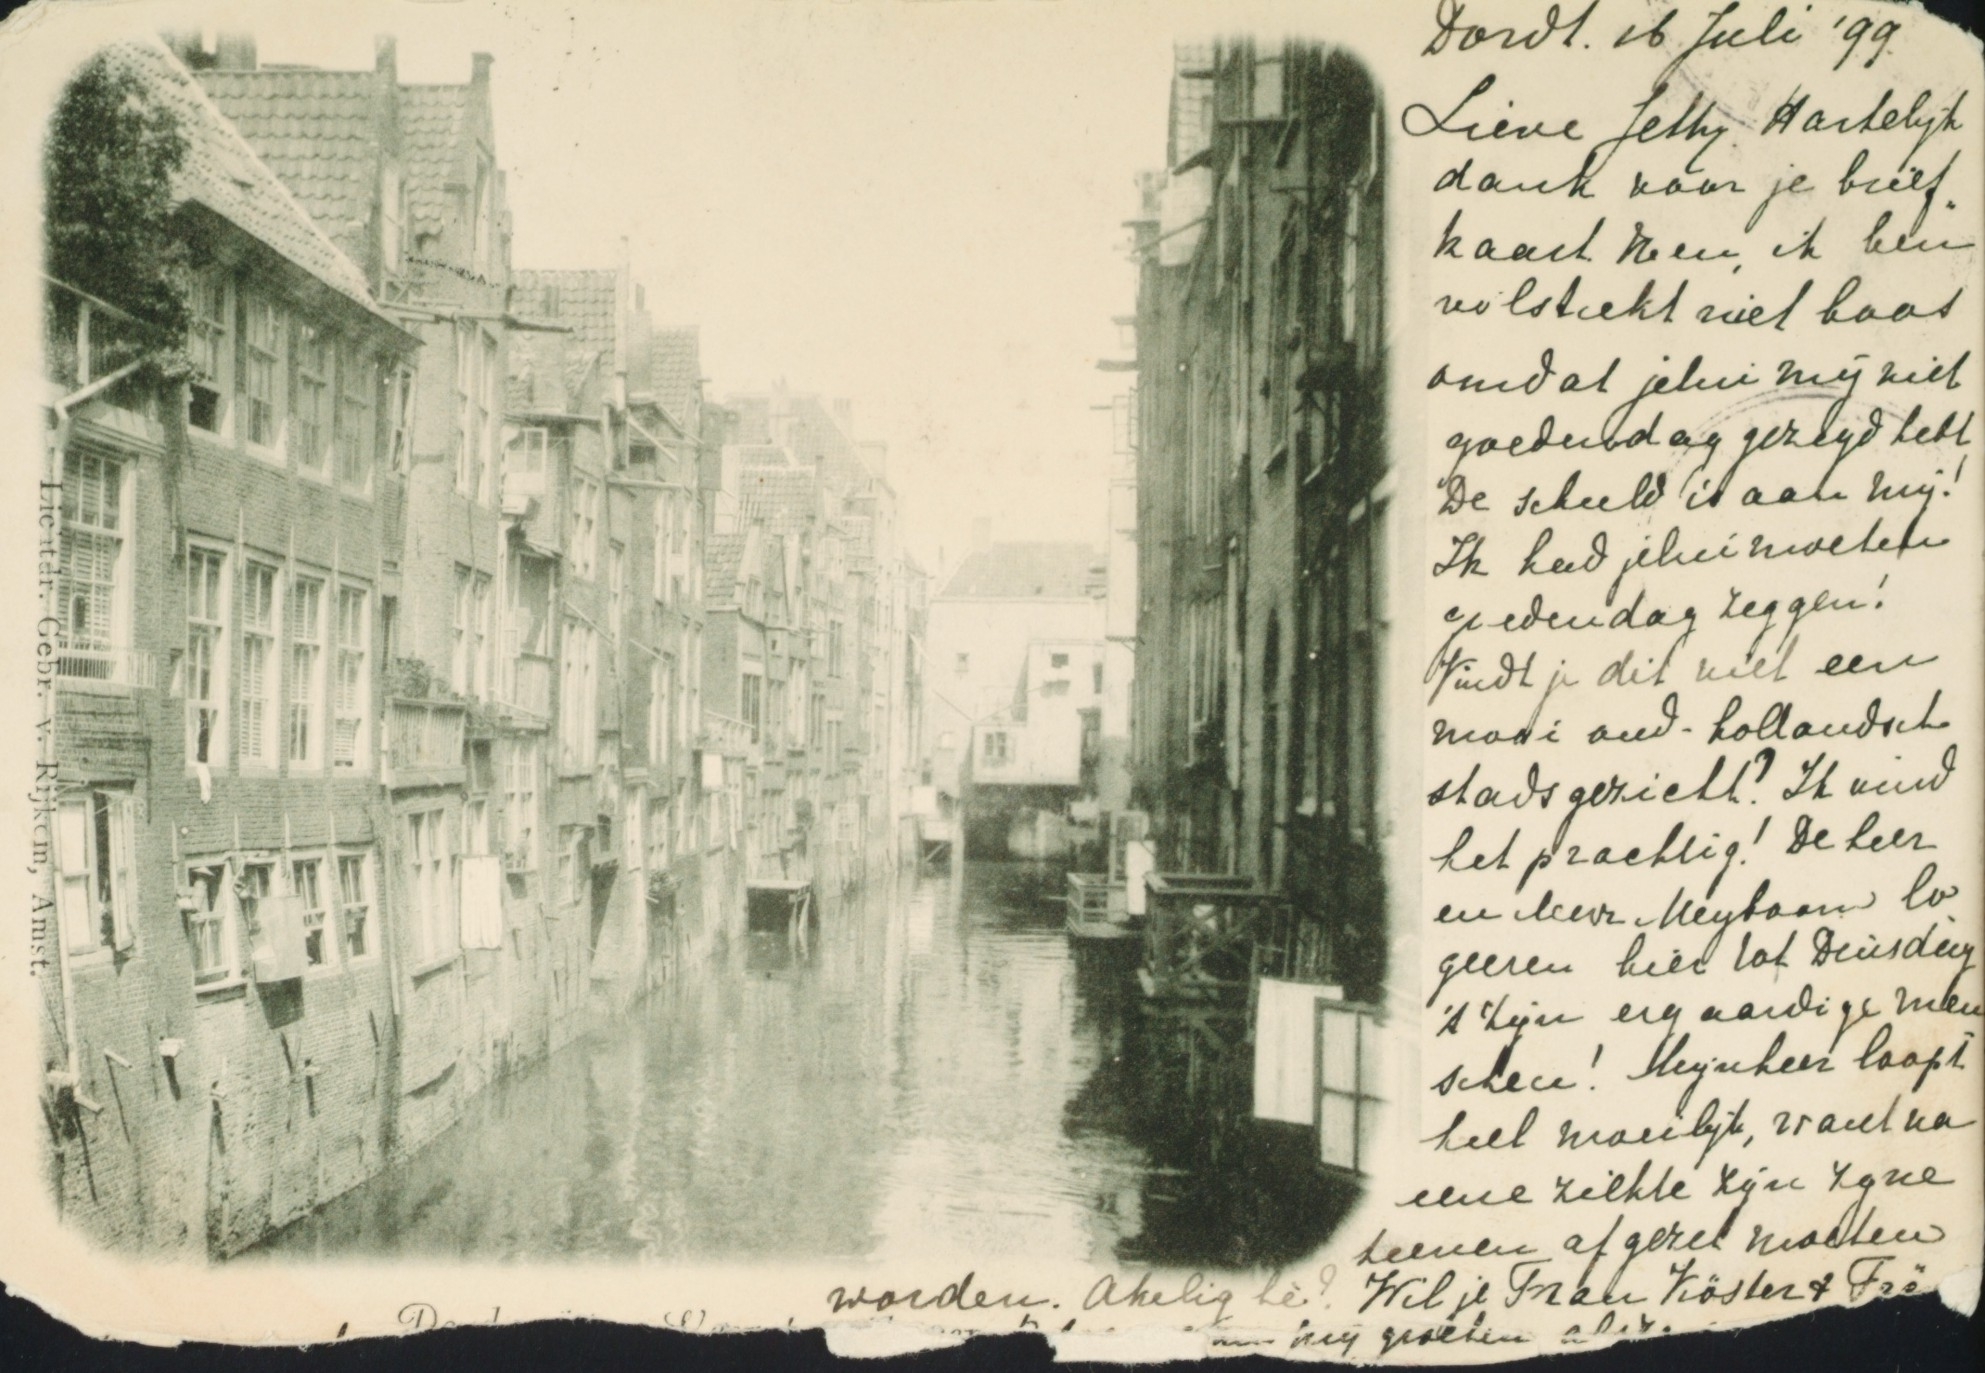 Dordt. 16 Juli '99
Lieve Jetty. Hartelijk
dank voor je brief„
kaart Neen, ik ben
volstrekt niet boos
omdat jelui mij niet
goedendag gezegd hebt
De schuld is aan mij!
Ik had jelui moeten
goedendag zeggen!
Vindt je dit niet een
mooi oud-hollandsch
stadsgezicht? Ik vind
het prachtig! De heer
en Mevr. Meyboom lo
geeren hier tot Dinsdag
't zijn erg aardige men
schen! Mijnheer loopt
heel moeilijk, want na
eene ziekte zijn zijne
teenen afgezet moeten
worden. Akelig hè? Wil je Frau Köster & Frö
mij groeten
Lichtdr. Gebr. v. Rijkom, Amst.